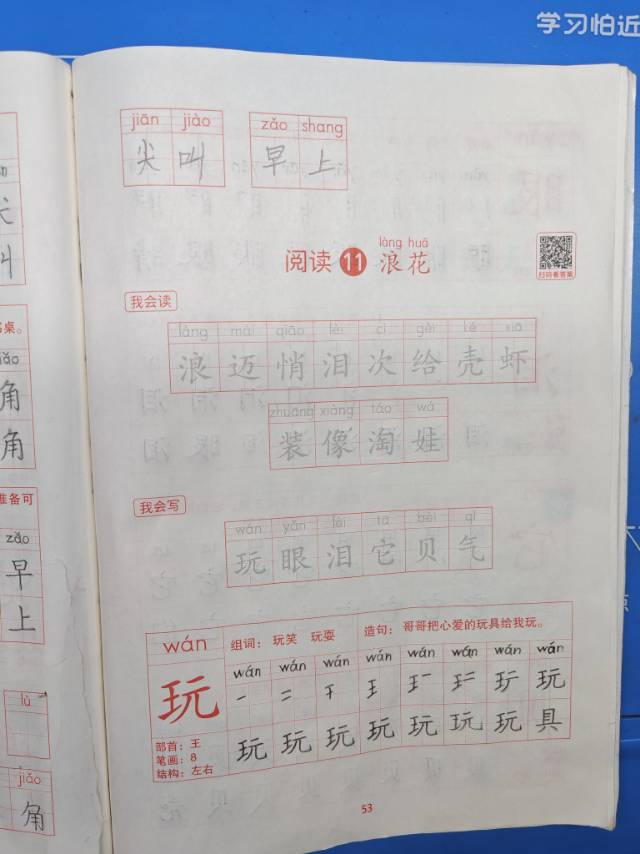 学习怕近
jiān jiào zǎo shang
尖 叫 早 上
làng huā
阅读 11 浪花
扫码看答案
我会读
làng mài qiāo lèi cì gěi ké xiā
浪 迈 悄 泪 次 给 壳 虾
zhuāng xiàng táo wá
装 像 淘 娃
我会写
wán yǎn lèi tā bèi qì
玩 眼 泪 它 贝 气
wán 组词：玩笑 玩耍 造句：哥哥把心爱的玩具给我玩。
wán wán wán wán wán wán wán wán
玩
部首：王
笔画：8
结构：左右
玩 玩 玩 玩 玩 玩 玩 具
53
桌。
角
角
准备可
zǎo
早
上
lù
jiǎo
角